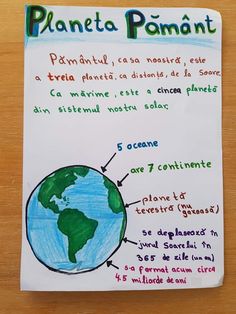 Planeta Pământ
Pământul, casa noastră, este
a treia planetă, ca distanță, de la Soare.
Ca mărime, este a cincea planetă
din sistemul nostru solar.
5 oceane
are 7 continente
planetă
terestră (nu
gazoasă)
se deplasează în
jurul Soarelui în
365 de zile (un an)
s-a format acum circa
4.5 miliarde de ani